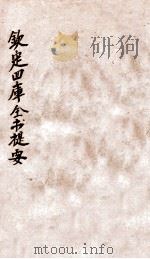 欽定四庫全書提要
mtoou.info